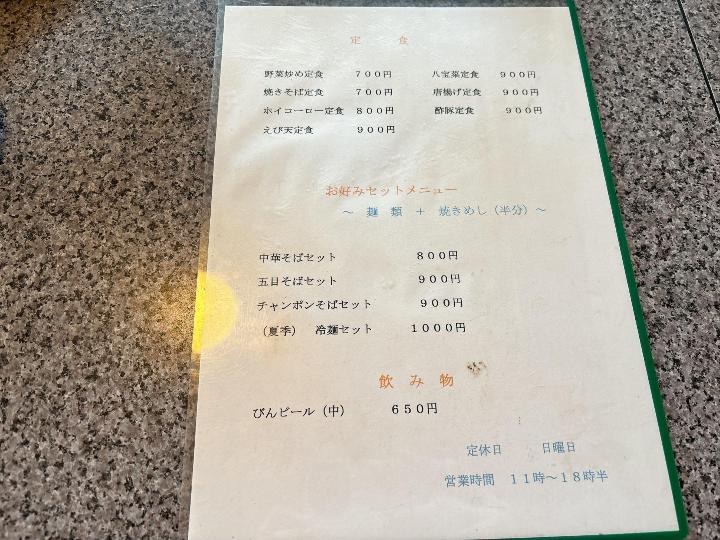 定 食
野菜炒め定食 ７００円 八宝菜定食 ９００円
焼きそば定食 ７００円 唐揚げ定食 ９００円
ホイコーロー定食 ８００円 酢豚定食 ９００円
えび天定食 ９００円
お好みセットメニュー
～ 麺 類 ＋ 焼きめし（半分）～
中華そばセット ８００円
五目そばセット ９００円
チャンポンそばセット ９００円
（夏季） 冷麺セット １０００円
飲 み 物
びんビール（中） ６５０円
定休日 日曜日
営業時間 １１時～１８時半